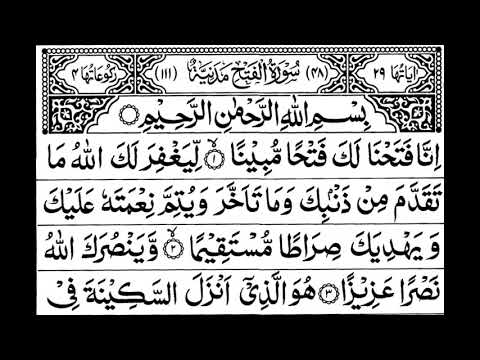 اٰیَاتُهَا ٢٩ (٤٨) سُوْرَةُ الْفَتْحِ مَدَنِيَّةٌ (١١١) رُكُوْعَاتُهَا ٤
بِسْمِ اللّٰهِ الرَّحْمٰنِ الرَّحِيْمِ
اِنَّا فَتَحْنَا لَكَ فَتْحًا مُّبِيْنًا ۝١ لِّيَغْفِرَ لَكَ اللّٰهُ مَا
تَقَدَّمَ مِنْ ذَنْۢبِكَ وَمَا تَاَخَّرَ وَيُتِمَّ نِعْمَتَهٗ عَلَيْكَ
وَيَهْدِيَكَ صِرَاطًا مُّسْتَقِيْمًا ۝٢ وَّيَنْصُرَكَ اللّٰهُ
نَصْرًا عَزِيْزًا ۝٣ هُوَ الَّذِيْۤ اَنْزَلَ السَّكِيْنَةَ فِيْ